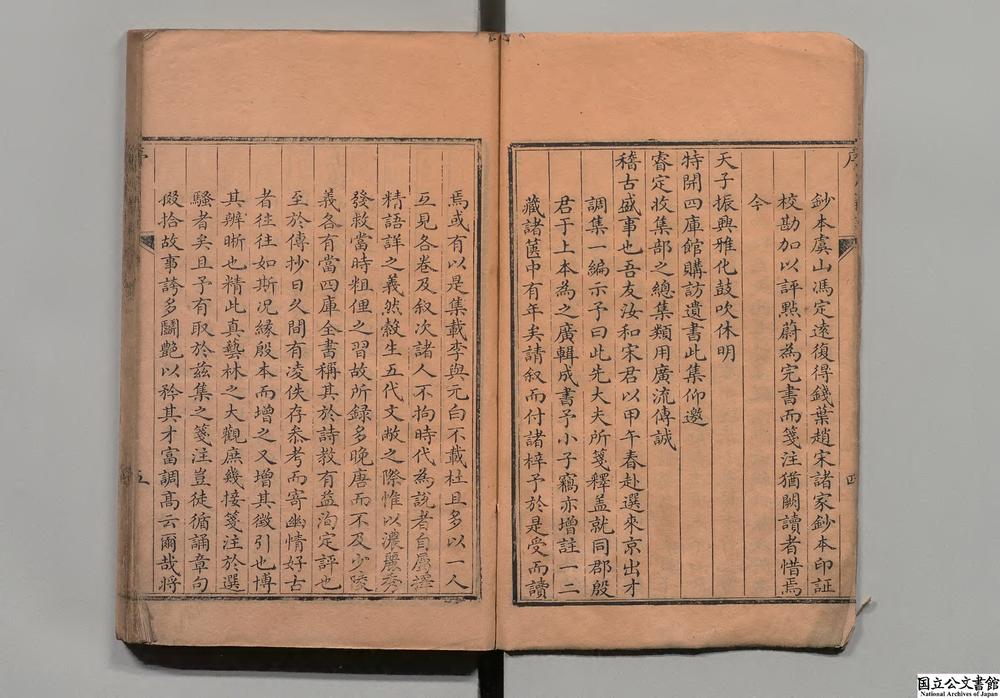 鈔本虞山馮定遠復得錢葉趙宋諸家鈔本印証
校勘加以評點蔚為完書而箋注猶闕讀者惜焉
今
天子振興雅化鼓吹休明
特開四庫館購訪遺書此集仰邀
睿定收集部之總集類用廣流傳誠
稽古盛事也吾友汝和宋君以甲午春赴選來京出才
調集一編示予曰此先大夫所箋釋盖就同郡殷
君于上本為之廣輯成書予小子竊亦增註一二
藏諸篋中有年矣請叙而付諸梓予於是受而讀
四
焉或有以是集載李與元白不載杜且多以一人
互見各卷及叙次諸人不拘時代為説者自屬謹
精語詳之義然縠生五代文敝之際惟以濃麗秀
發救當時粗俚之習故所録多晚唐而不及少陵
義各有當四庫全書稱其於詩教有益洵定評也
至於傳抄日久間有凌佚存叅考而寄幽情好古
者往往如斯况緣殷本而增之又增其徵引也博
其辨晰也精此真藝林之大觀庶幾接箋注於選
騷者矣且予有取於兹集之箋注豈徒循誦章句
偎拾故事誇多鬭艷以矜其才富調高云爾哉將
五
国立公文書館
National Archives of Japan